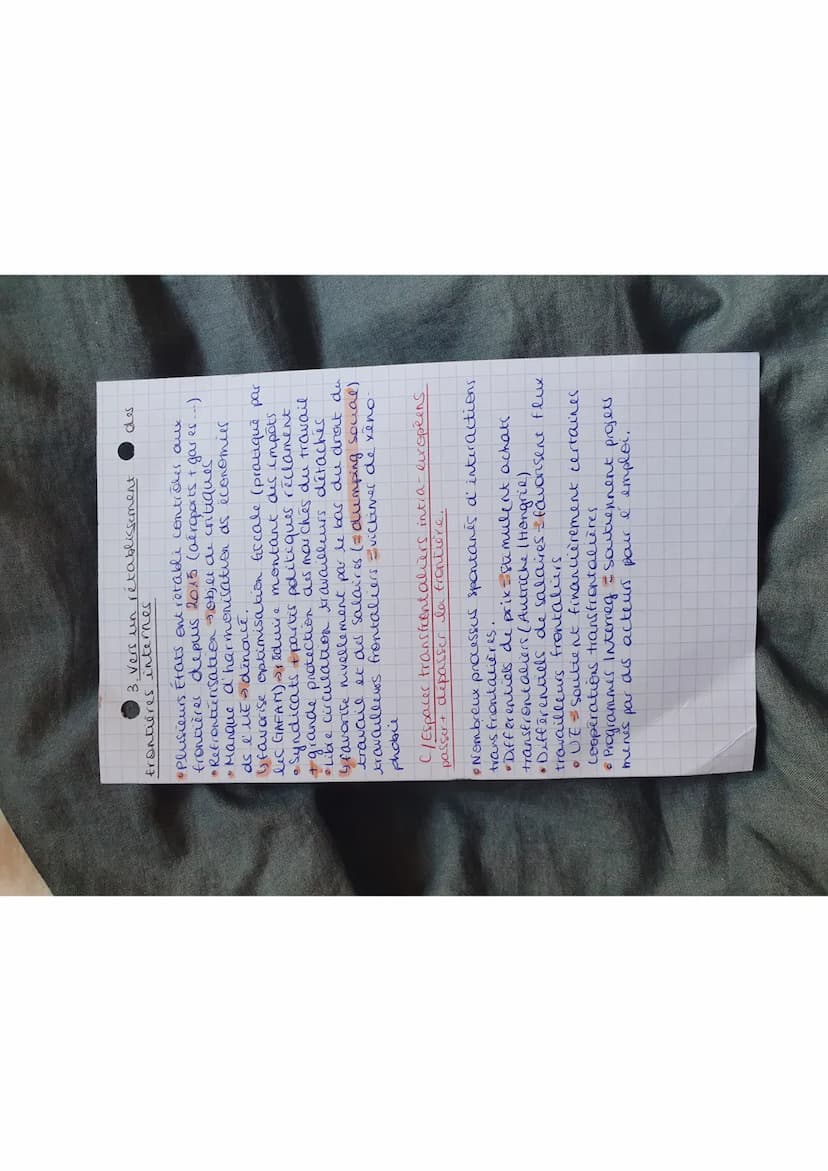 3. Vers un rétablissement des
frontières internes
• Plusieurs États ont rétabli contrôles aux
frontières depuis 2015 (aéroports + gares ...)
• Refrontiérisation → objet de critiques
• Manque d'harmonisation ds économies
ds l'UE → dénoncé.
↳ favorise optimisation fiscale (pratiqué par
les GAFAM) → réduire montant des impôts
• Syndicats + partis politiques réclament
+ grande protection des marchés du travail
• Libe circulation travailleurs détachés
↳ favorise nivellement par le bas du droit du
travail et des salaires (= dumping social)
travailleurs frontaliers = victimes de xéno-
phobie
C/ Espaces transfrontaliers intra-européens
passer + dépasser la frontière.
• Nombreux processus spontanés d'interactions
transfrontalières.
• Différentiels de prix = stimulent achats
transfrontaliers (Autriche / Hongrie)
• Différentiels de salaires → favorisent flux
travailleurs frontaliers
• UE = soutient financièrement certaines
coopérations transfrontalières
• Programmes Interreg = soutiennent projets
menés par des acteurs pour l'emploi.